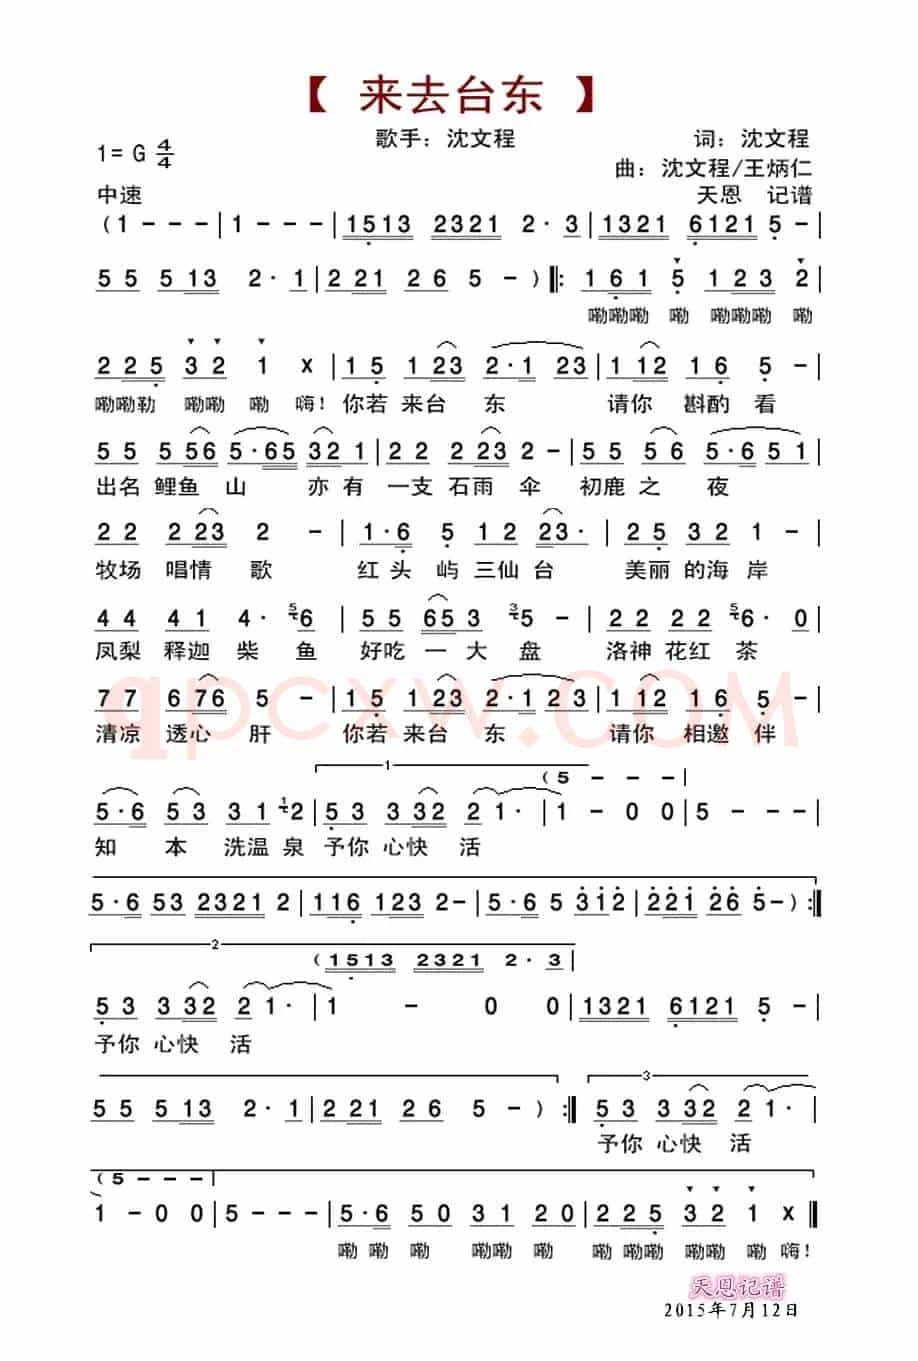 【 来去台东 】
歌手：沈文程 词：沈文程
1= G 4/4 曲：沈文程/王炳仁
中速 天恩 记谱
(1 - - - | 1 - - - | 1513 2321 2· 3 | 1321 6121 5 - |
55 513 2· 1 | 2 21 26 5 - ) ‖: 161 5 123 2 |
嘞嘞嘞 嘞 嘞嘞嘞 嘞
225 32 1 x | 15 123 2·1 23 | 112 16 5 - |
嘞嘞勒 嘞嘞 嘞 嗨! 你若 来台 东 请你 斟酌 看
55 556 5·65 321 | 22 223 2 - | 55 56 5·6 51 |
出名 鲤鱼 山 亦有 一支 石雨 伞 初鹿 之 夜
22 223 2 - | 1·6 5 12 23· | 25 32 1 - |
牧场 唱情 歌 红头 屿 三仙 台 美丽 的海 岸
44 41 4· 5 6 | 55 653 3 5 - | 22 22 5 6· 0 |
凤梨 释迦 柴 鱼 好吃 一大 盘 洛神 花红 茶
77 676 5 - | 15 123 2·1 23 | 112 16 5 - |
清凉 透心 肝 你若 来台 东 请你 相邀 伴
1
(5 - - - |
5·6 53 31 1 2 | 53 332 2 1· | 1 - 0 0 | 5 - - - |
知 本 洗温 泉 予你 心快 活
5·6 53 2321 2 | 116 123 2 - | 5·6 5 312 | 221 26 5 - ) :‖
2
(1513 2321 2· 3 |
53 332 2 1· | 1 - 0 0 | 1321 6121 5 - |
予你 心快 活
55 513 2· 1 | 2 21 26 5 - ) :‖ 53 332 2 1· |
3
予你 心快 活
(5 - - - |
1 - 0 0 | 5 - - - | 5·6 50 31 20 | 225 32 1 x ‖
嘞 嘞 嘞 嘞嘞 嘞 嘞 嘞嘞 嘞嘞 嘞 嗨!
qpcxw.COM
天恩记谱
2015年7月12日